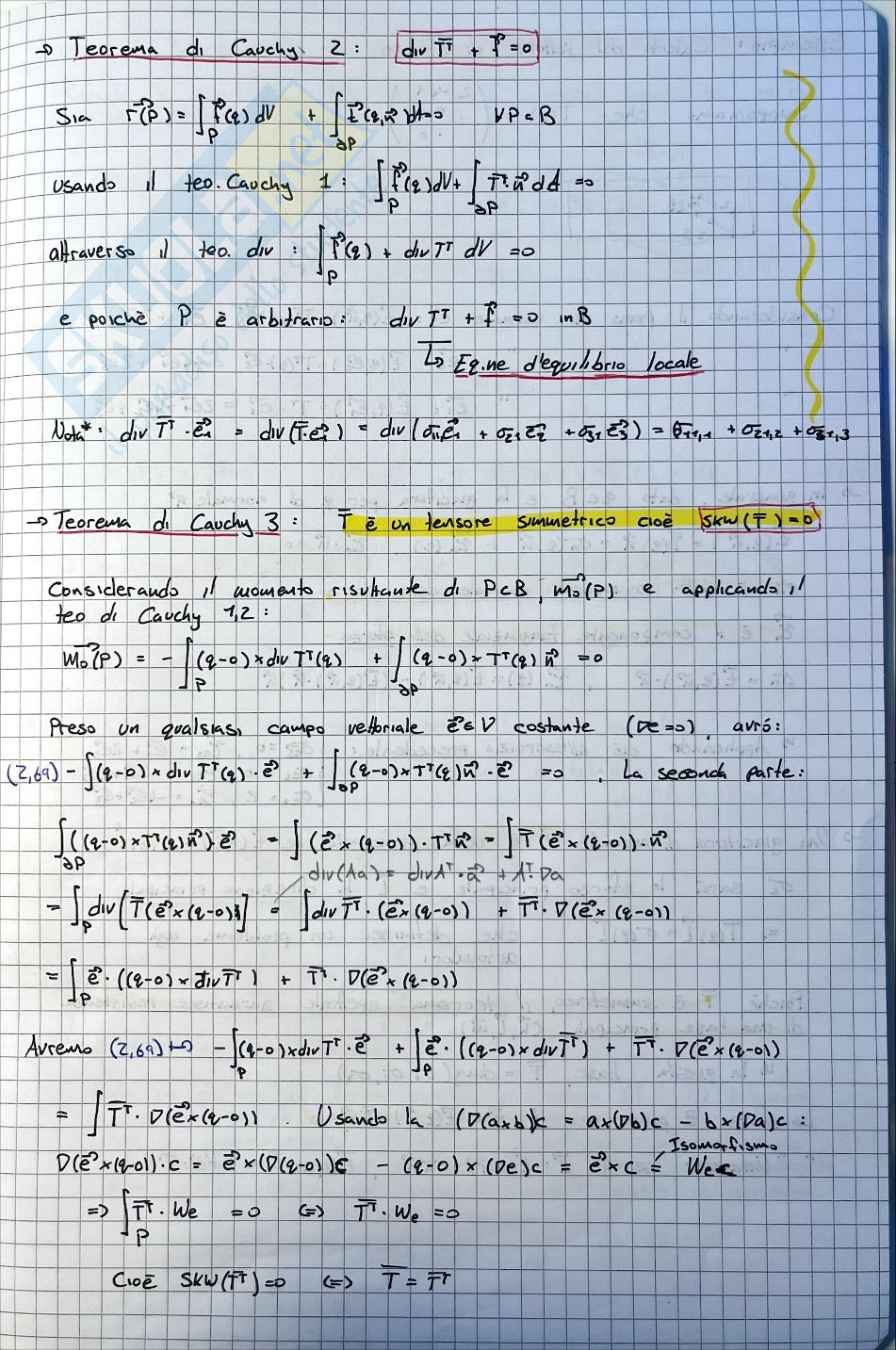 → Teorema di Cauchy 2 : div T̄ᵀ + f⃗ = 0
Sia r⃗(P) = ∫_P f⃗(q) dV + ∫_∂P t⃗(q,n⃗) dA=0 ∀P⊂B
usando il teo. Cauchy 1 : ∫_P f⃗(q)dV + ∫_∂P Tᵀn⃗ dA =0
attraverso il teo. div : ∫_P f⃗(q) + div Tᵀ dV =0
e poichè P è arbitrario: div Tᵀ + f⃗ =0 in B
↳ Eq.ne d'equilibrio locale
Nota*: div T̄ᵀ · e⃗₁ = div (T̄·e⃗₁) = div (σ₁₁e⃗₁ + σ₂₁e⃗₂ + σ₃₁e⃗₃) = σ₁₁,₁ + σ₂₁,₂ + σ₃₁,₃
→ Teorema di Cauchy 3 : T̄ è un tensore simmetrico cioè SKW(T̄)=0
Considerando il momento risultante di P⊂B, m⃗₀(P) e applicando il
teo di Cauchy 1,2 :
m⃗₀(P) = - ∫_P (q-o)×div Tᵀ(q) + ∫_∂P (q-o)×Tᵀ(q) n⃗ =0
Preso un qualsiasi campo vettoriale e⃗∈V costante (De=0), avrò:
(2,69) - ∫(q-o)×div Tᵀ(q)·e⃗ + ∫_∂P (q-o)×Tᵀ(q)n⃗·e⃗ =0 , La seconda parte:
∫_∂P ((q-o)×Tᵀ(q)n⃗)·e⃗ = ∫(e⃗×(q-o))·Tᵀn⃗ = ∫T̄(e⃗×(q-o))·n⃗
div(Aa) = divAᵀ·a⃗ + Aᵀ·Da
= ∫_P div[T̄(e⃗×(q-o))] = ∫div T̄ᵀ·(e⃗×(q-o)) + T̄ᵀ·D(e⃗×(q-o))
= ∫_P e⃗·((q-o)×div T̄ᵀ) + T̄ᵀ·D(e⃗×(q-o))
Avremo (2,69) ↦ -∫_P (q-o)×div Tᵀ·e⃗ + ∫_P e⃗·((q-o)×div T̄ᵀ) + T̄ᵀ·D(e⃗×(q-o))
= ∫T̄ᵀ·D(e⃗×(q-o)) . Usando la (D(a×b))c = a×(Db)c - b×(Da)c :
Isomorfismo
D(e⃗×(q-o))·c = e⃗×(D(q-o))c - (q-o)×(De)c = e⃗×c = Wₑc
=> ∫_P T̄ᵀ·We =0 <=> T̄ᵀ·We =0
Cioè SKW(T̄ᵀ)=0 <=> T̄ = T̄ᵀ